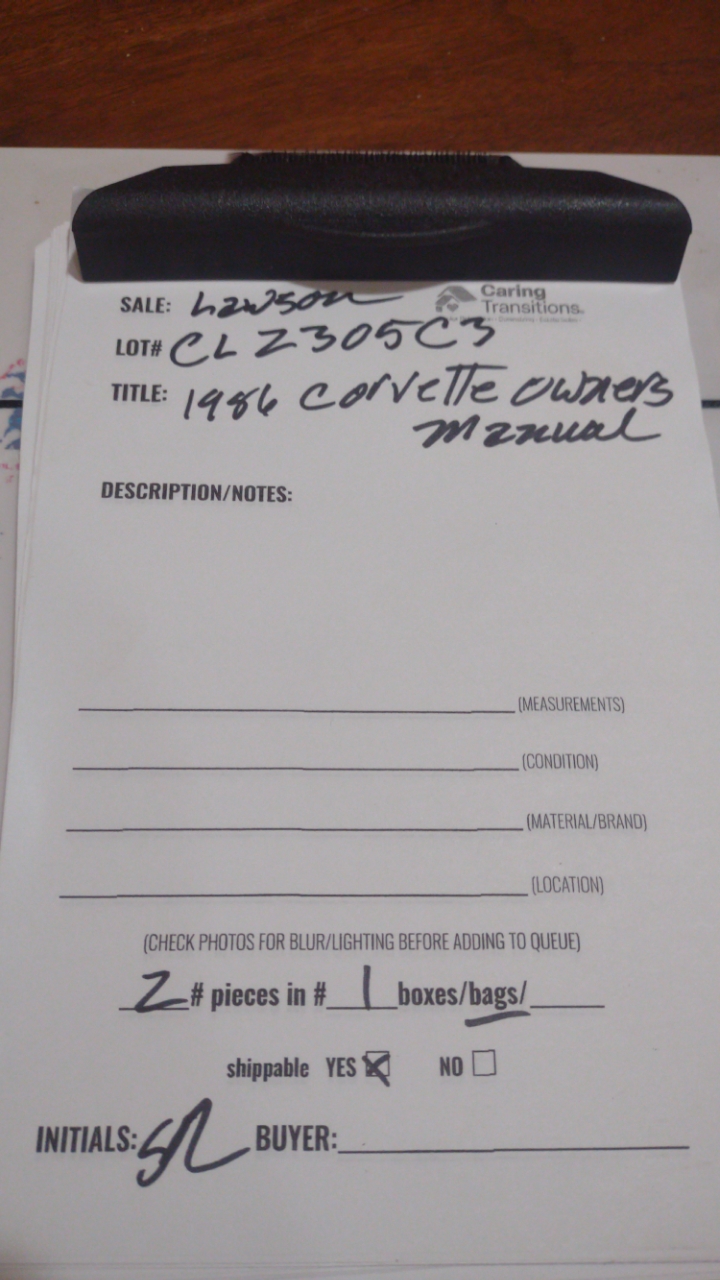 SALE: Lawson
Caring
Transitions.
LOT# CL2305C3
TITLE: 1986 Corvette owners
manual
DESCRIPTION/NOTES:
(MEASUREMENTS)
(CONDITION)
(MATERIAL/BRAND)
(LOCATION)
(CHECK PHOTOS FOR BLUR/LIGHTING BEFORE ADDING TO QUEUE)
2 # pieces in # 1 boxes/bags/
shippable YES NO
INITIALS: SR BUYER: